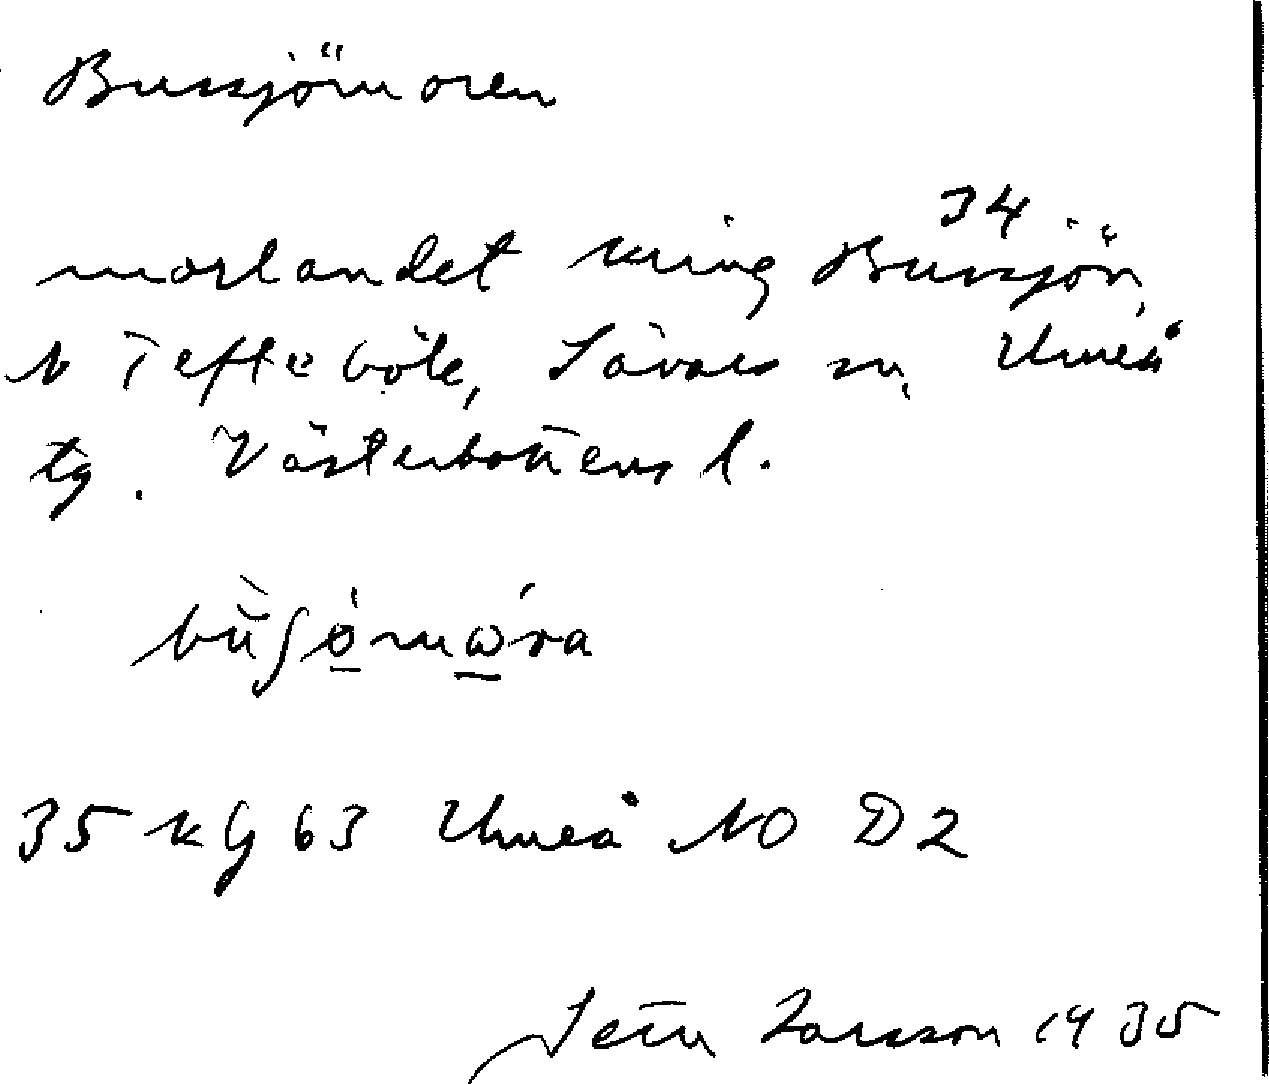 Bussjömoren
34
morlandet kring Bussjön,
N Täfteböle, Sävars sn, Umeå
tg. Västerbottens l.
35 kg 63 Umeå NO D2
Larsson 1935